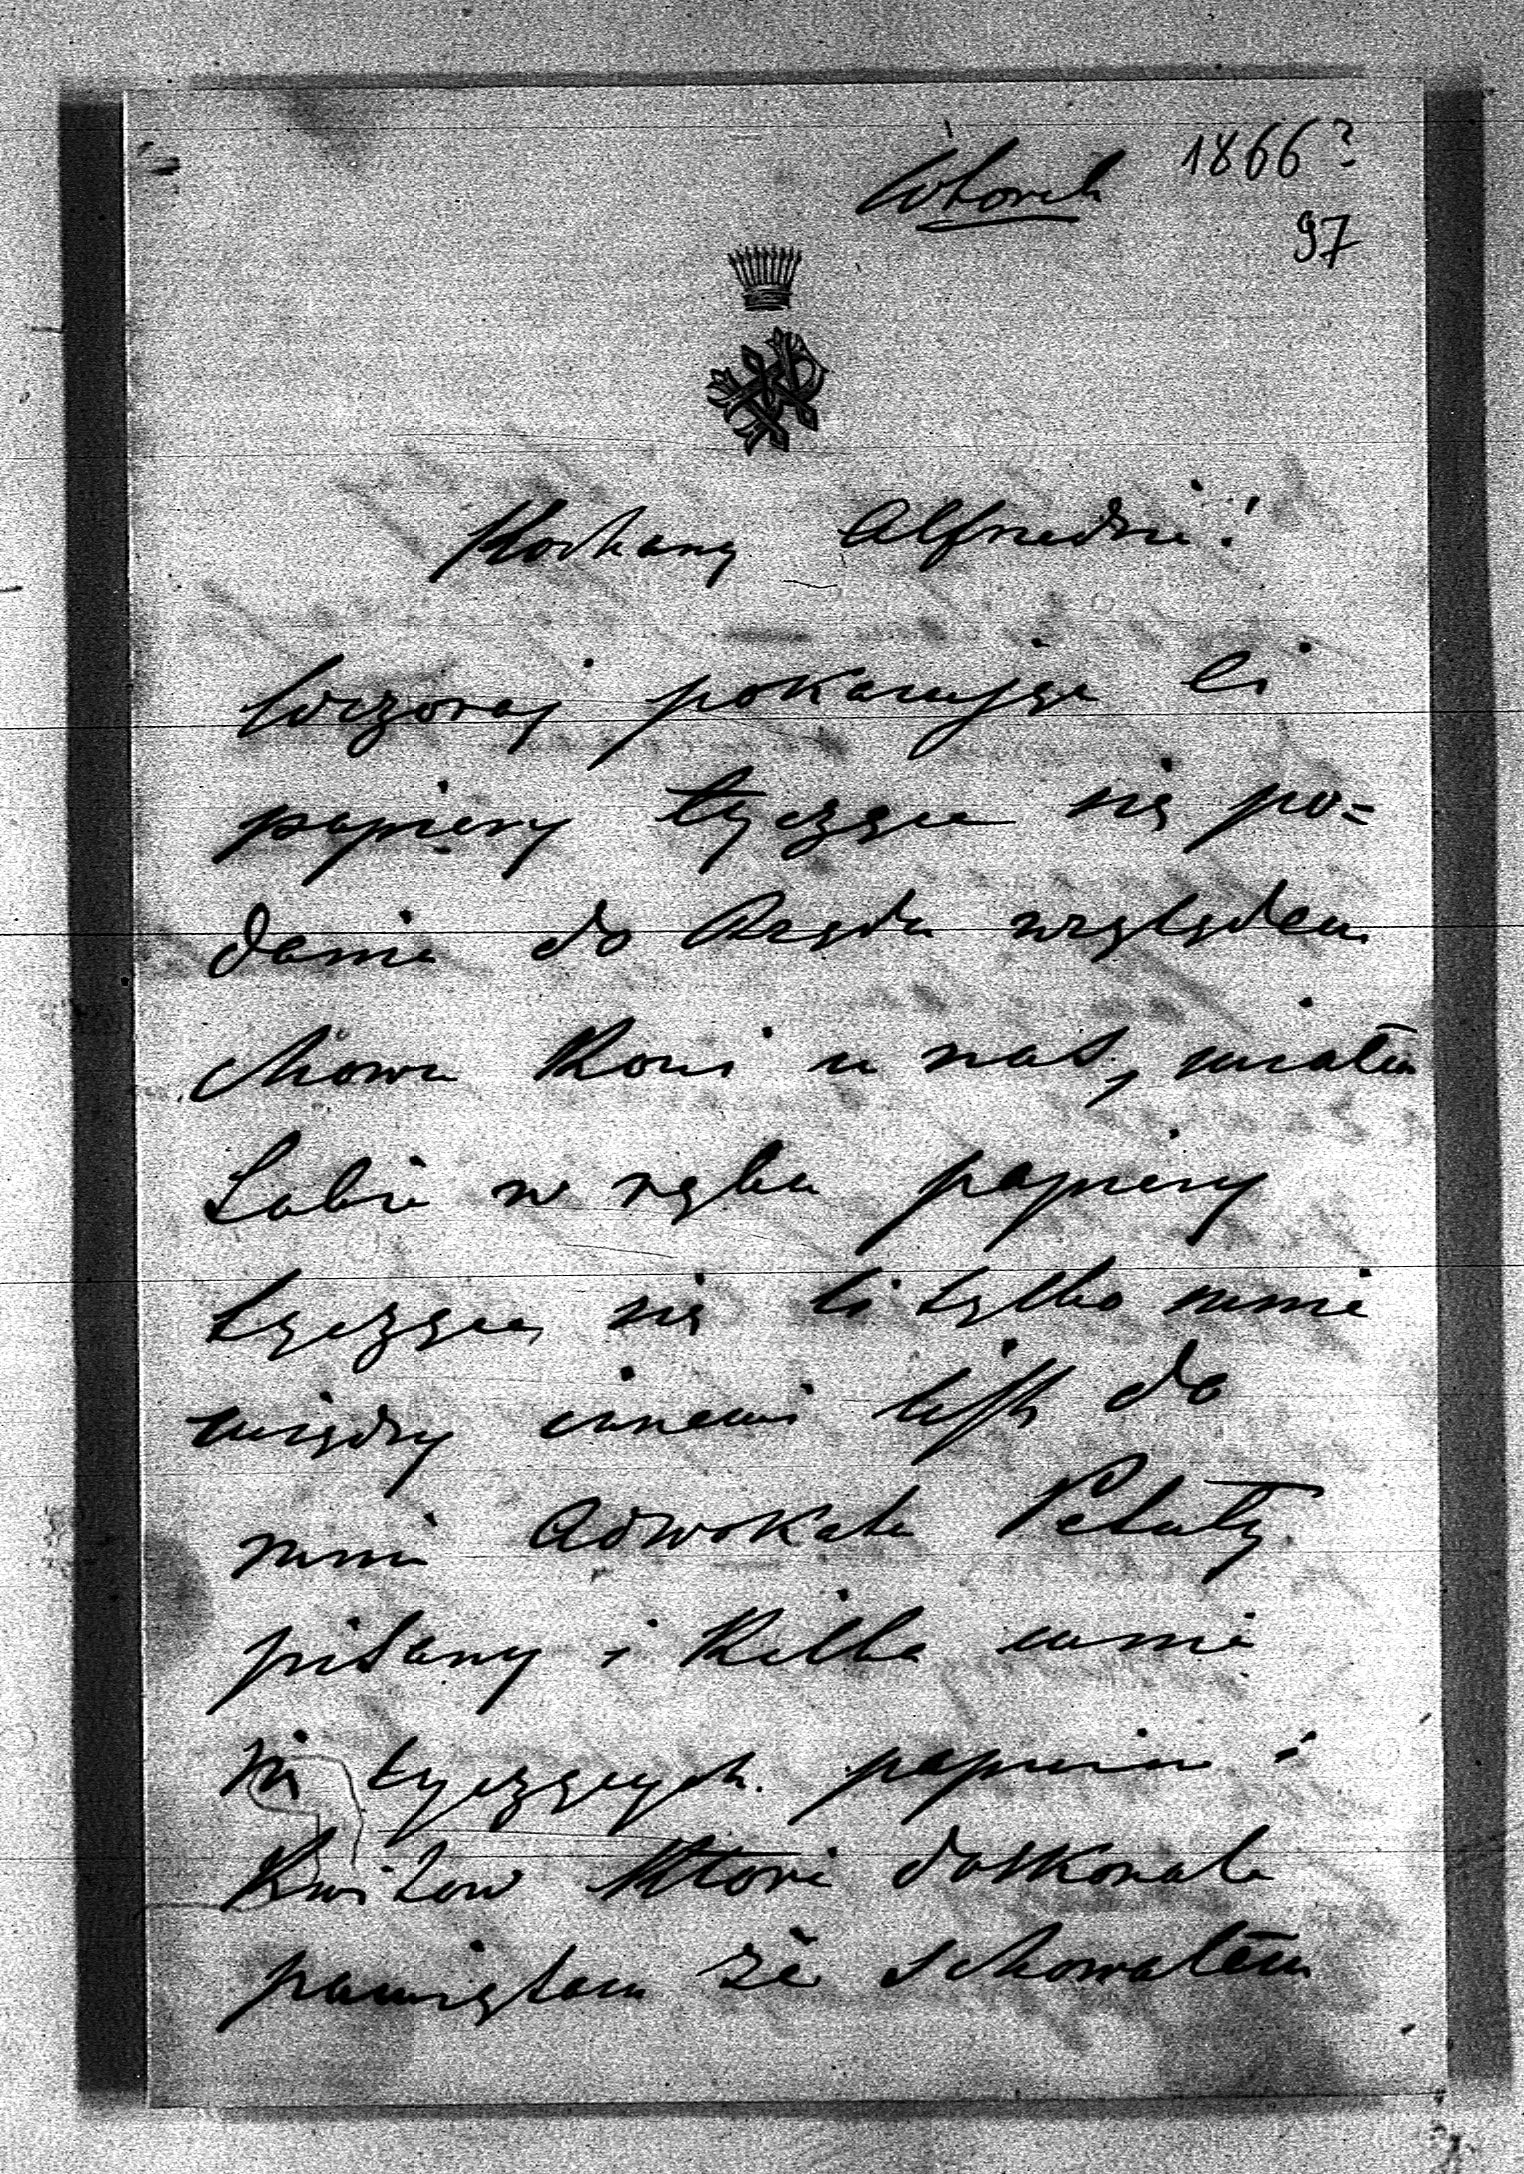 Wtorek 1866?
97
Kochany Alfredzie!
Wczoraj pokazując Ci
papiery tyczące się po=
dania do Rządu względem
chowu Koni u nas, miałem
Sobie w ręku papiery
tyczące się li tylko mnie
między innemi list do
mnie Adwokata
pisany i Kilka mnie
się tyczących papierów i
Kwitów które doskonale
pamiętam że schowałem